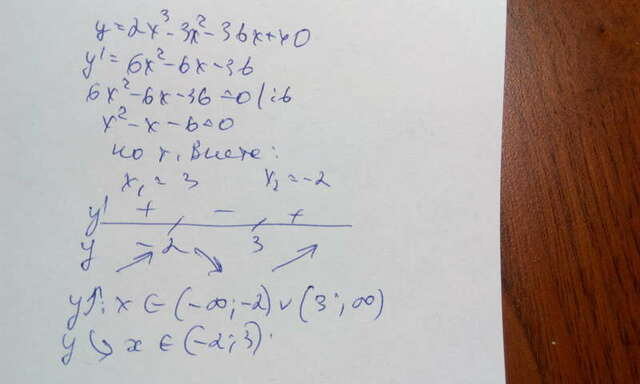 y=2x³-3x²-36x+40
y'=6x²-6x-36
6x²-6x-36=0 |:6
x²-x-6=0
по т. Виета:
x₁=3 x₂=-2
y' + - +
y -2 3
↗ ↘ ↗
y↑: x ∈ (-∞;-2) ∪ (3;∞)
y ↘ x ∈ (-2;3).